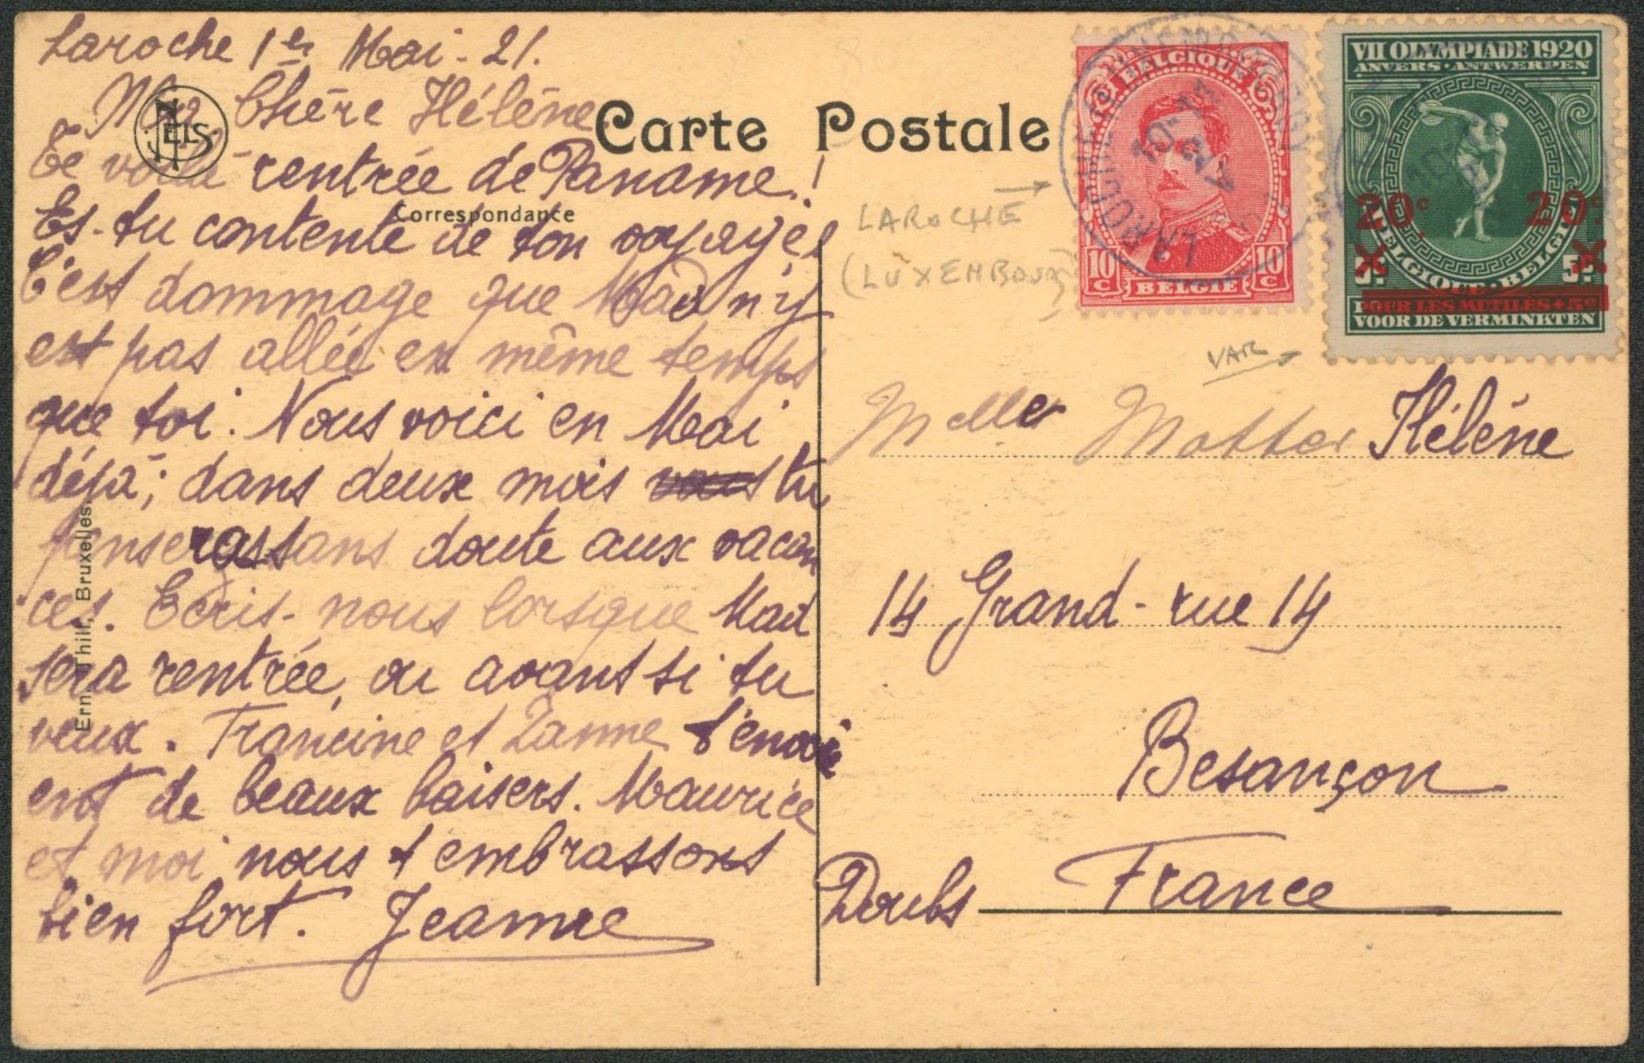 Laroche 1er Mai - 21.
Ma Chère Hélène
Te voilà rentrée de Paname!
Es-tu contente de ton voyage,
C'est dommage que Mad n'y
est pas allée en même temps
que toi. Nous voici en Mai
déjà; dans deux mois vous tu
penseras sans doute aux vacan
ces. Ecris-nous lorsque Mad
sera rentrée, ou avant si tu
veux. Francine et Zanne t'envoi
ent de beaux baisers. Maurice
et moi nous t'embrassons
bien fort. Jeanne
NELS
Carte Postale
Correspondance
Ern. Thill, Bruxelles
LAROCHE
(LUXEMBOURG)
VAR
BELGIQUE
10 c
BELGIE
10 c
LAROCHE
10-11
VII OLYMPIADE 1920
ANVERS · ANTWERPEN
20c. 20c.
BELGIQUE · BELGIË
5c.
POUR LES MUTILÉS + 5c
VOOR DE VERMINKTEN
Melle Hélène
14 Grand-rue 14
Besançon
Doubs France